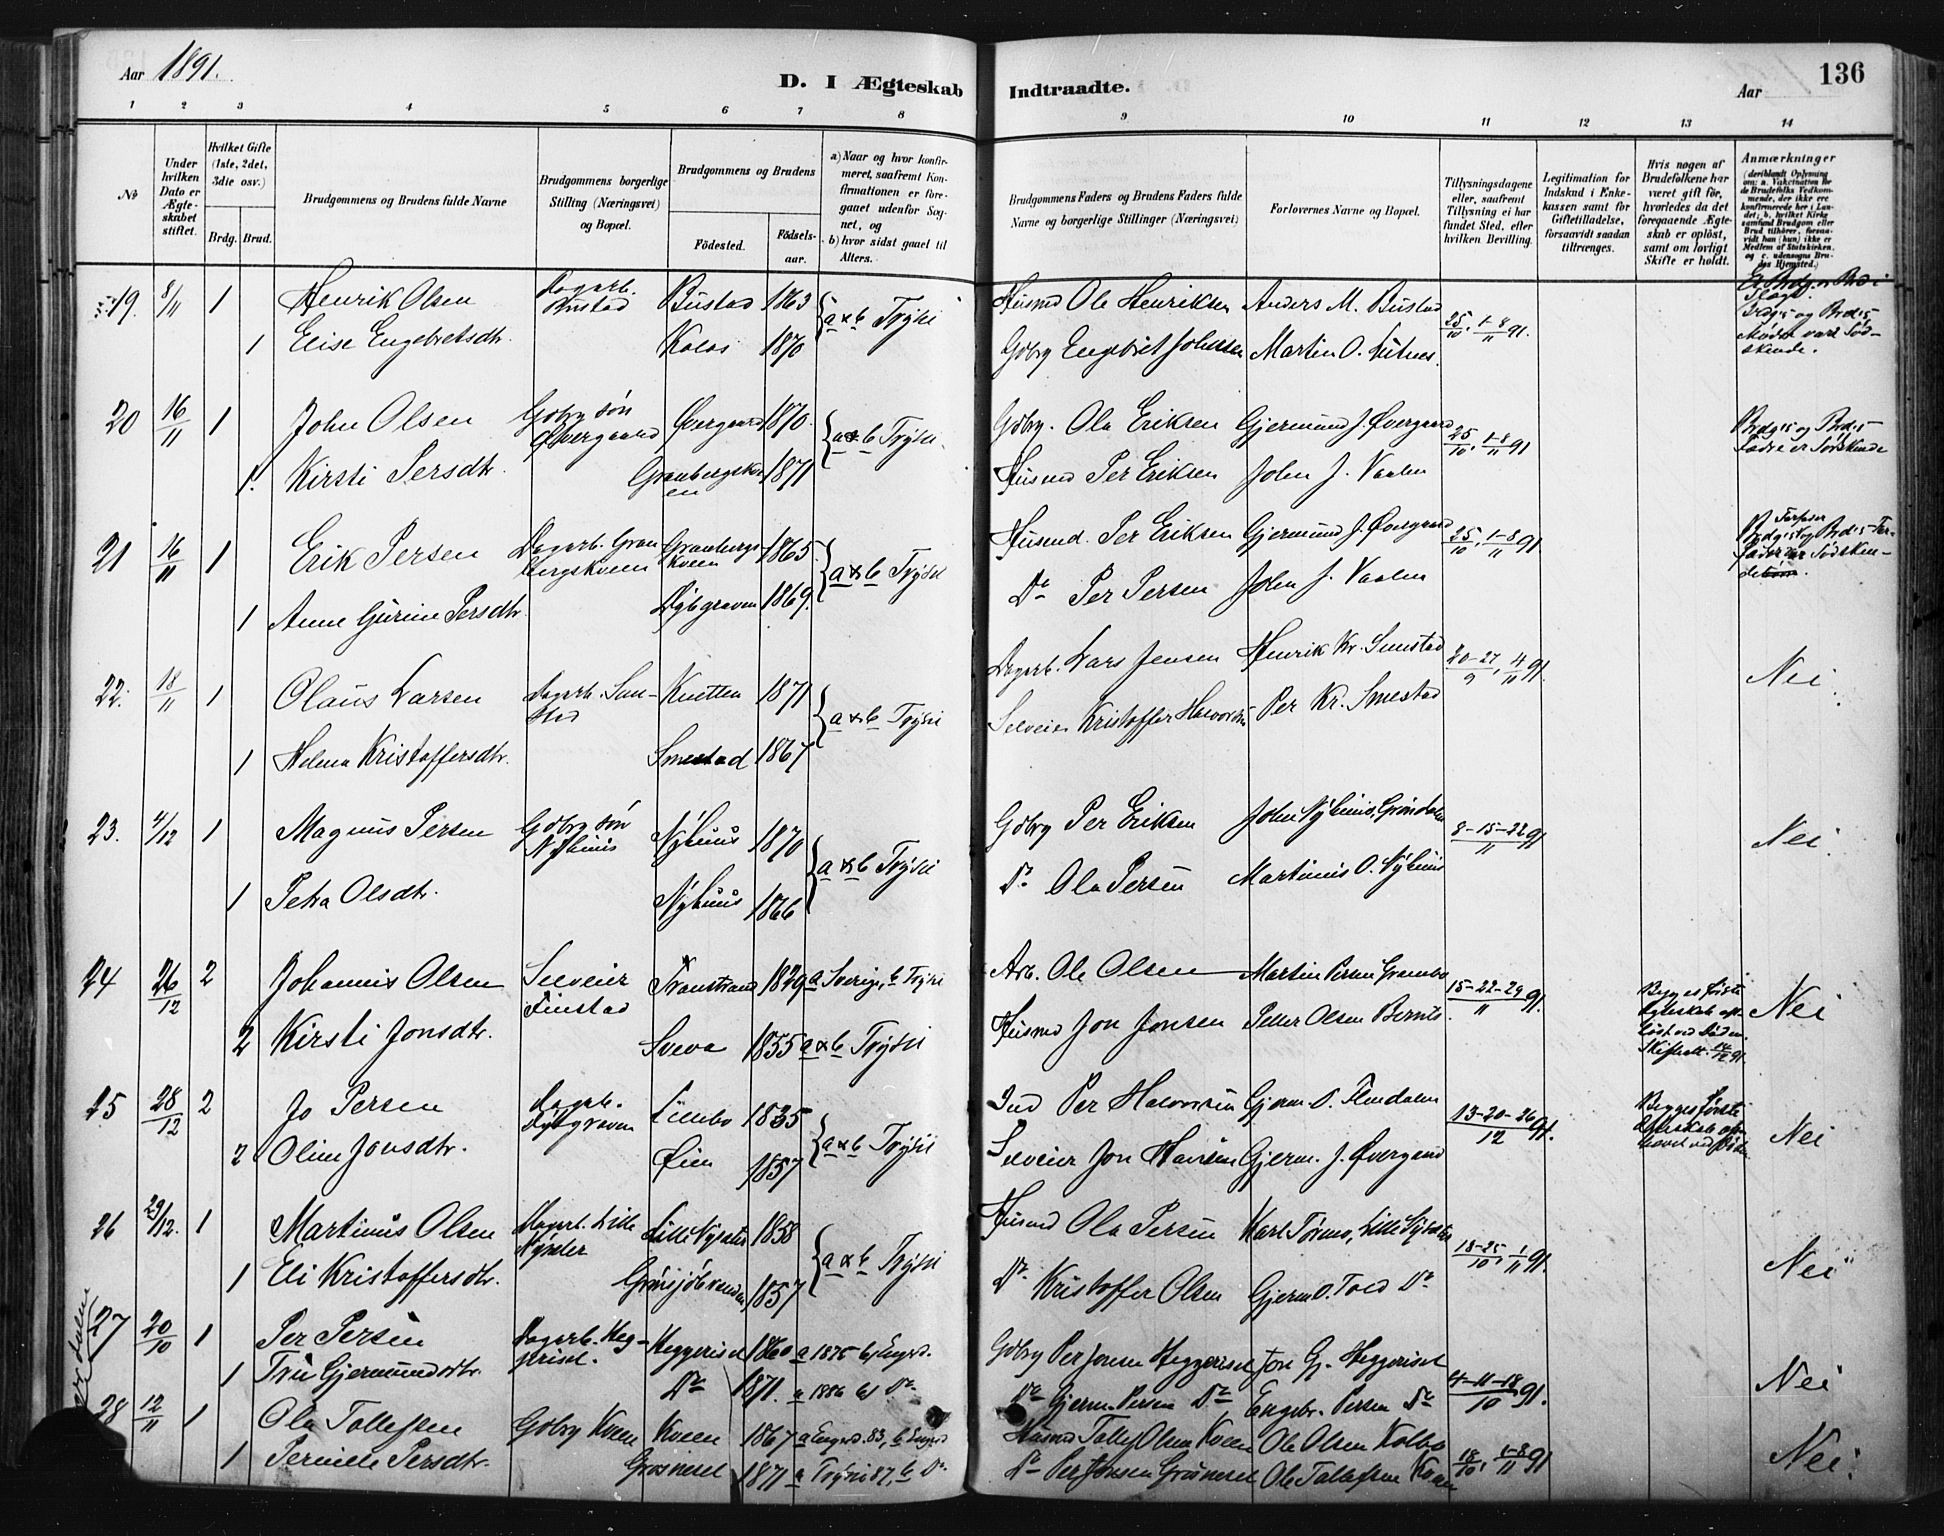 Aar 1891.
D. I Ægteskab Indtraadte.
Aar
136
1 2 3 4 5 6 7 8 9 10 11 12 13 14
No
Under hvilken Dato er Ægteskabet stiftet.
Hvilket Gifte (1ste, 2det, 3die osv.)
Brdg. Brud.
Brudgommens og Brudens fulde Navne
Brudgommens borgerlige Stilling (Næringsvei) og Bopæl.
Brudgommens og Brudens
Födested.
Födselsaar.
a) Naar og hvor konfirmeret, saafremt Konfirmationen er foregaaet udenfor Sognet, og
b) hvor sidst gaaet til Alters.
Brudgommens Faders og Brudens Faders fulde Navne og borgerlige Stillinger (Næringsvei)
Forlovernes Navne og Bopæl.
Tillysningsdagene eller, saafremt Tillysning ei har fundet Sted, efter hvilken Bevilling.
Legitimation for Indskud i Enkekassen samt for Giftetilladelse, forsaavidt saadan tiltrænges.
Hvis nogen af Brudefolkene har været gift för, hvorledes da det foregaaende Ægteskab er oplöst, samt om lovligt Skifte er holdt.
Anmærkninger
19. 8/11 1 Henrik Olsen Dagarb. Bustad Bustad 1863 a & b Trysil Husmd Ole Henriksen Anders M. Bustad 25/10, 1-8/11 91.
1 Elise Engebretsdtr. Kolos 1870 Gdbrg Engebret Johnsen Martin O. Lutnes Brdg.s og Brd.s Mødre vare Sødskende.
20 16/11 1 John Olsen Gdbrg. søn Øvergaard Øvergaard 1870. a & b Trysil. Gdbrg. Ola Eriksen Gjermund J. Øvergaard 25/10, 1-8/11 91 Brdg.s og Brd.s Fædre er Sødskende
1. Kirsti Persdtr. Granbergskveen 1871 Husmd Per Eriksen John J. Vaalen
21 16/11 1 Erik Persen Dagarb. Granbergskveen Granbergskveen 1865. a & b Trysil Husmd. Per Eriksen Gjermund J. Øvergaard 25/10, 1-8/11 91
1 Anne Gurine Persdtr. Dybgraven 1869. Do Per Persen John J. Vaalen
22. 18/11 1 Olaus Larsen Dagarb. Knetten 1871 a & b Trysil Dagarb. Lars Jensen Henrik Kr. Smestad 20-27/9, 4/11 91. Nei.
1 Helena Kristoffersdtr. Smestad 1867 Selveier Kristoffer Halvorsen Per Kr. Smestad
23. 4/12 1 Magnus Persen Gdbrg. søn Nyhuus Nyhuus 1870 a & b Trysil Gdbrg Per Eriksen John Nyhuus, Grøndalen 8-15-22/11 91 Nei.
1 Petra Olsdtr. Nyhuus 1866 Do Ola Persen Martinus O. Nyhuus
24 26/12 2 Johannis Olsen Selveier Finstad Transtrand 1829 a Sverige, b Trysil Arb. Ole Olsen Martin Persen Grambo 15-22-29/11 91. Begges første Ægteskab opløst ved Døden. Skifteatt. 14/12 91. Nei
2 Kirsti Jonsdtr. Sveva 1855 a & b Trysil Husmd Jon Jonsen Peter Olsen Bernts.
25 28/12 2 Jo Persen Dagarb. Dybgraven Limbo 1835 a & b Trysil Ind Per Halvorsen Gjerm. O. Flendalen 13-20-26/12 91. Begges første Ægteskab ophævet ved Døden Nei
2 Oline Jonsdtr. Øien 1857 Selveier Jon Gjerm. J. Øvergaard
26 29/12. 1 Martinus Olsen Dagarb. Lille Nysæter Lille Nysæter 1858 a & b Trysil Husmd Ola Persen Karl 18-25/10, 1/11 91. Nei
1 Eli Kristoffersdtr. 1857 Do Kristoffer Olsen Gjerm. O. Do
27 20/10 1 Per Persen Dagarb. Heggeriset. Heggeriset 1860 a 1875 b, Engerd. Gdbrg Per Jonsen Heggeriset Jon Gj. Heggeriset 4-11-18/10 91. Nei
1 Tru Gjermundsdtr. Do 1871. a 1886 b Do Do Gjerm. Persen Do Engebr. Persen Do
28 12/11 1 Ola Tollefsen Gdbrg Kveen Kveen 1867 a Engerd. 83, b Engerd Husmd Tollef Olsen Kveen Ole Olsen Kolbo 18/10, 1-8/11 91 Nei.
1 Pernille Persdtr. Grøsneset 1871 a Trysil 87, b Do Do Per Jonsen Grøsneset Ole Tollefsen Kveen